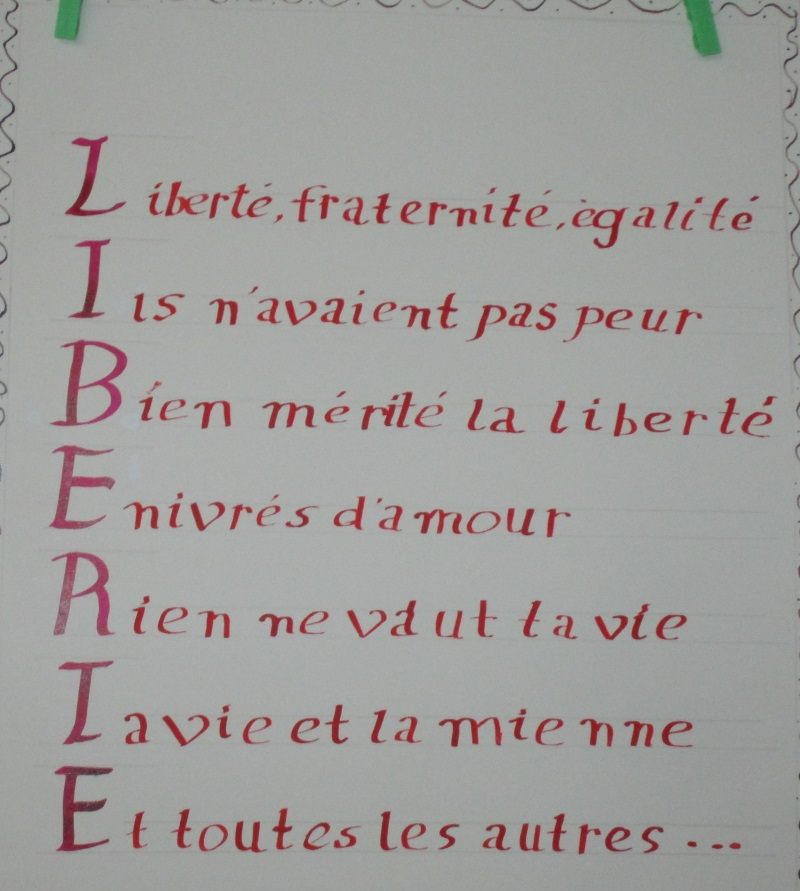 Liberté, fraternité, ègalité
Ils n'avaient pas peur
Bien mérité la liberté
Enivrés d'amour
Rien ne vaut la vie
Ta vie et la mienne
Et toutes les autres ...